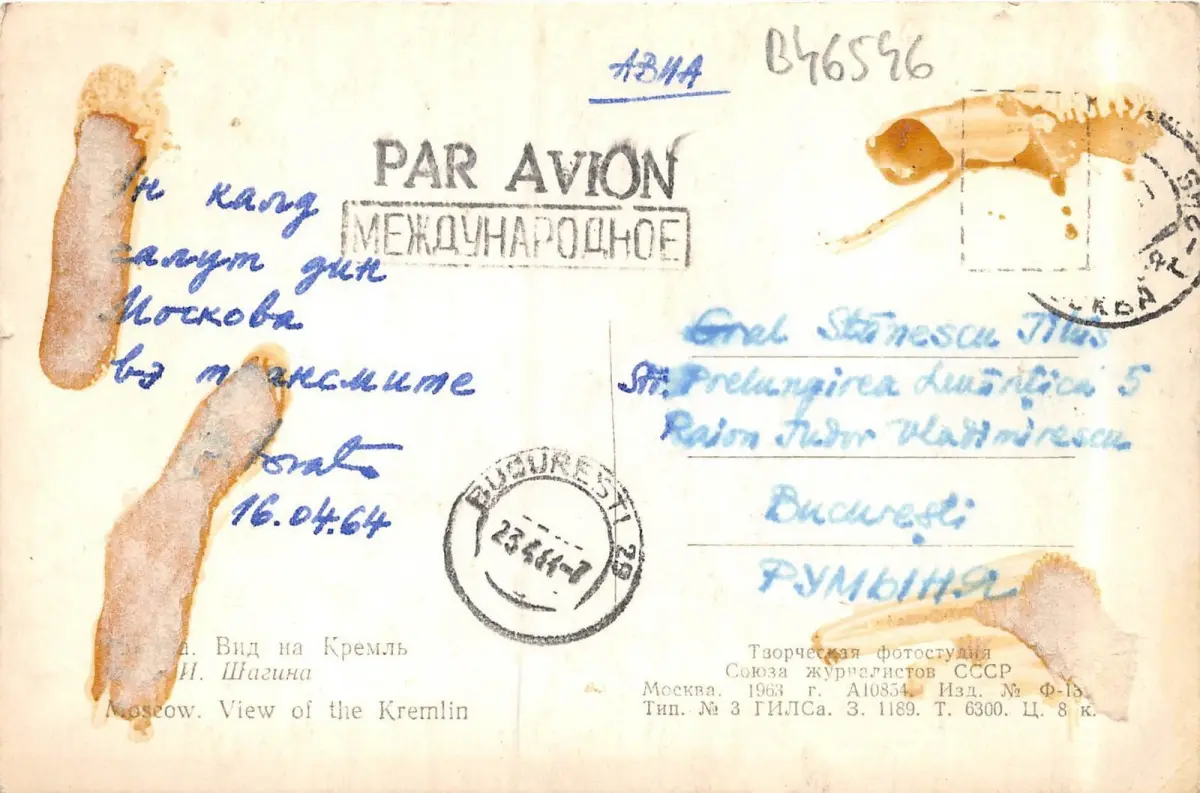 АВИА
B46546
PAR AVION
МЕЖДУНАРОДНОЕ
Ын калд
салут дин
Москова
вэ трансмите
16.04.64
BUCURESTI 29
23.4.64-7
Stănescu Titus
Str. Prelungirea Lemănțică 5
Raion Tudor Vladimirescu
București
РУМЫНИЯ
Вид на Кремль
И. Шагина
Moscow. View of the Kremlin
Творческая фотостудия
Союза журналистов СССР
Москва. 1963 г. А10854. Изд. № Ф-13
Тип. № 3 ГИЛСа. З. 1189. Т. 6300. Ц. 8 к.